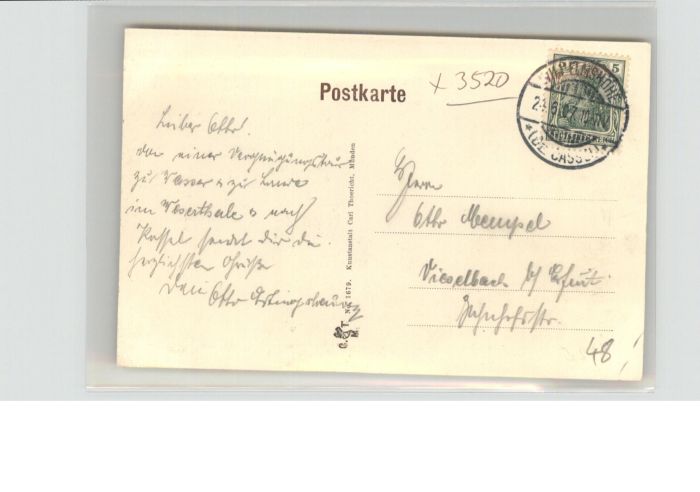 Postkarte
x 3520
5
WILHELMSHÖHE
(BZ. CASSEL)
Lieber Otto!
von einer Vergnügungstour
zu Wasser & zu Lande
im Weserthale & nach
Kassel sendet dir die
herzlichsten Grüße
Dein Otto
No. 1679. Kunstanstalt Carl Thoericht, Münden
C. T.
M.
Herrn
Otto Mempel
Vieselbach b/ Erfurt
Bahnhofstr.
48